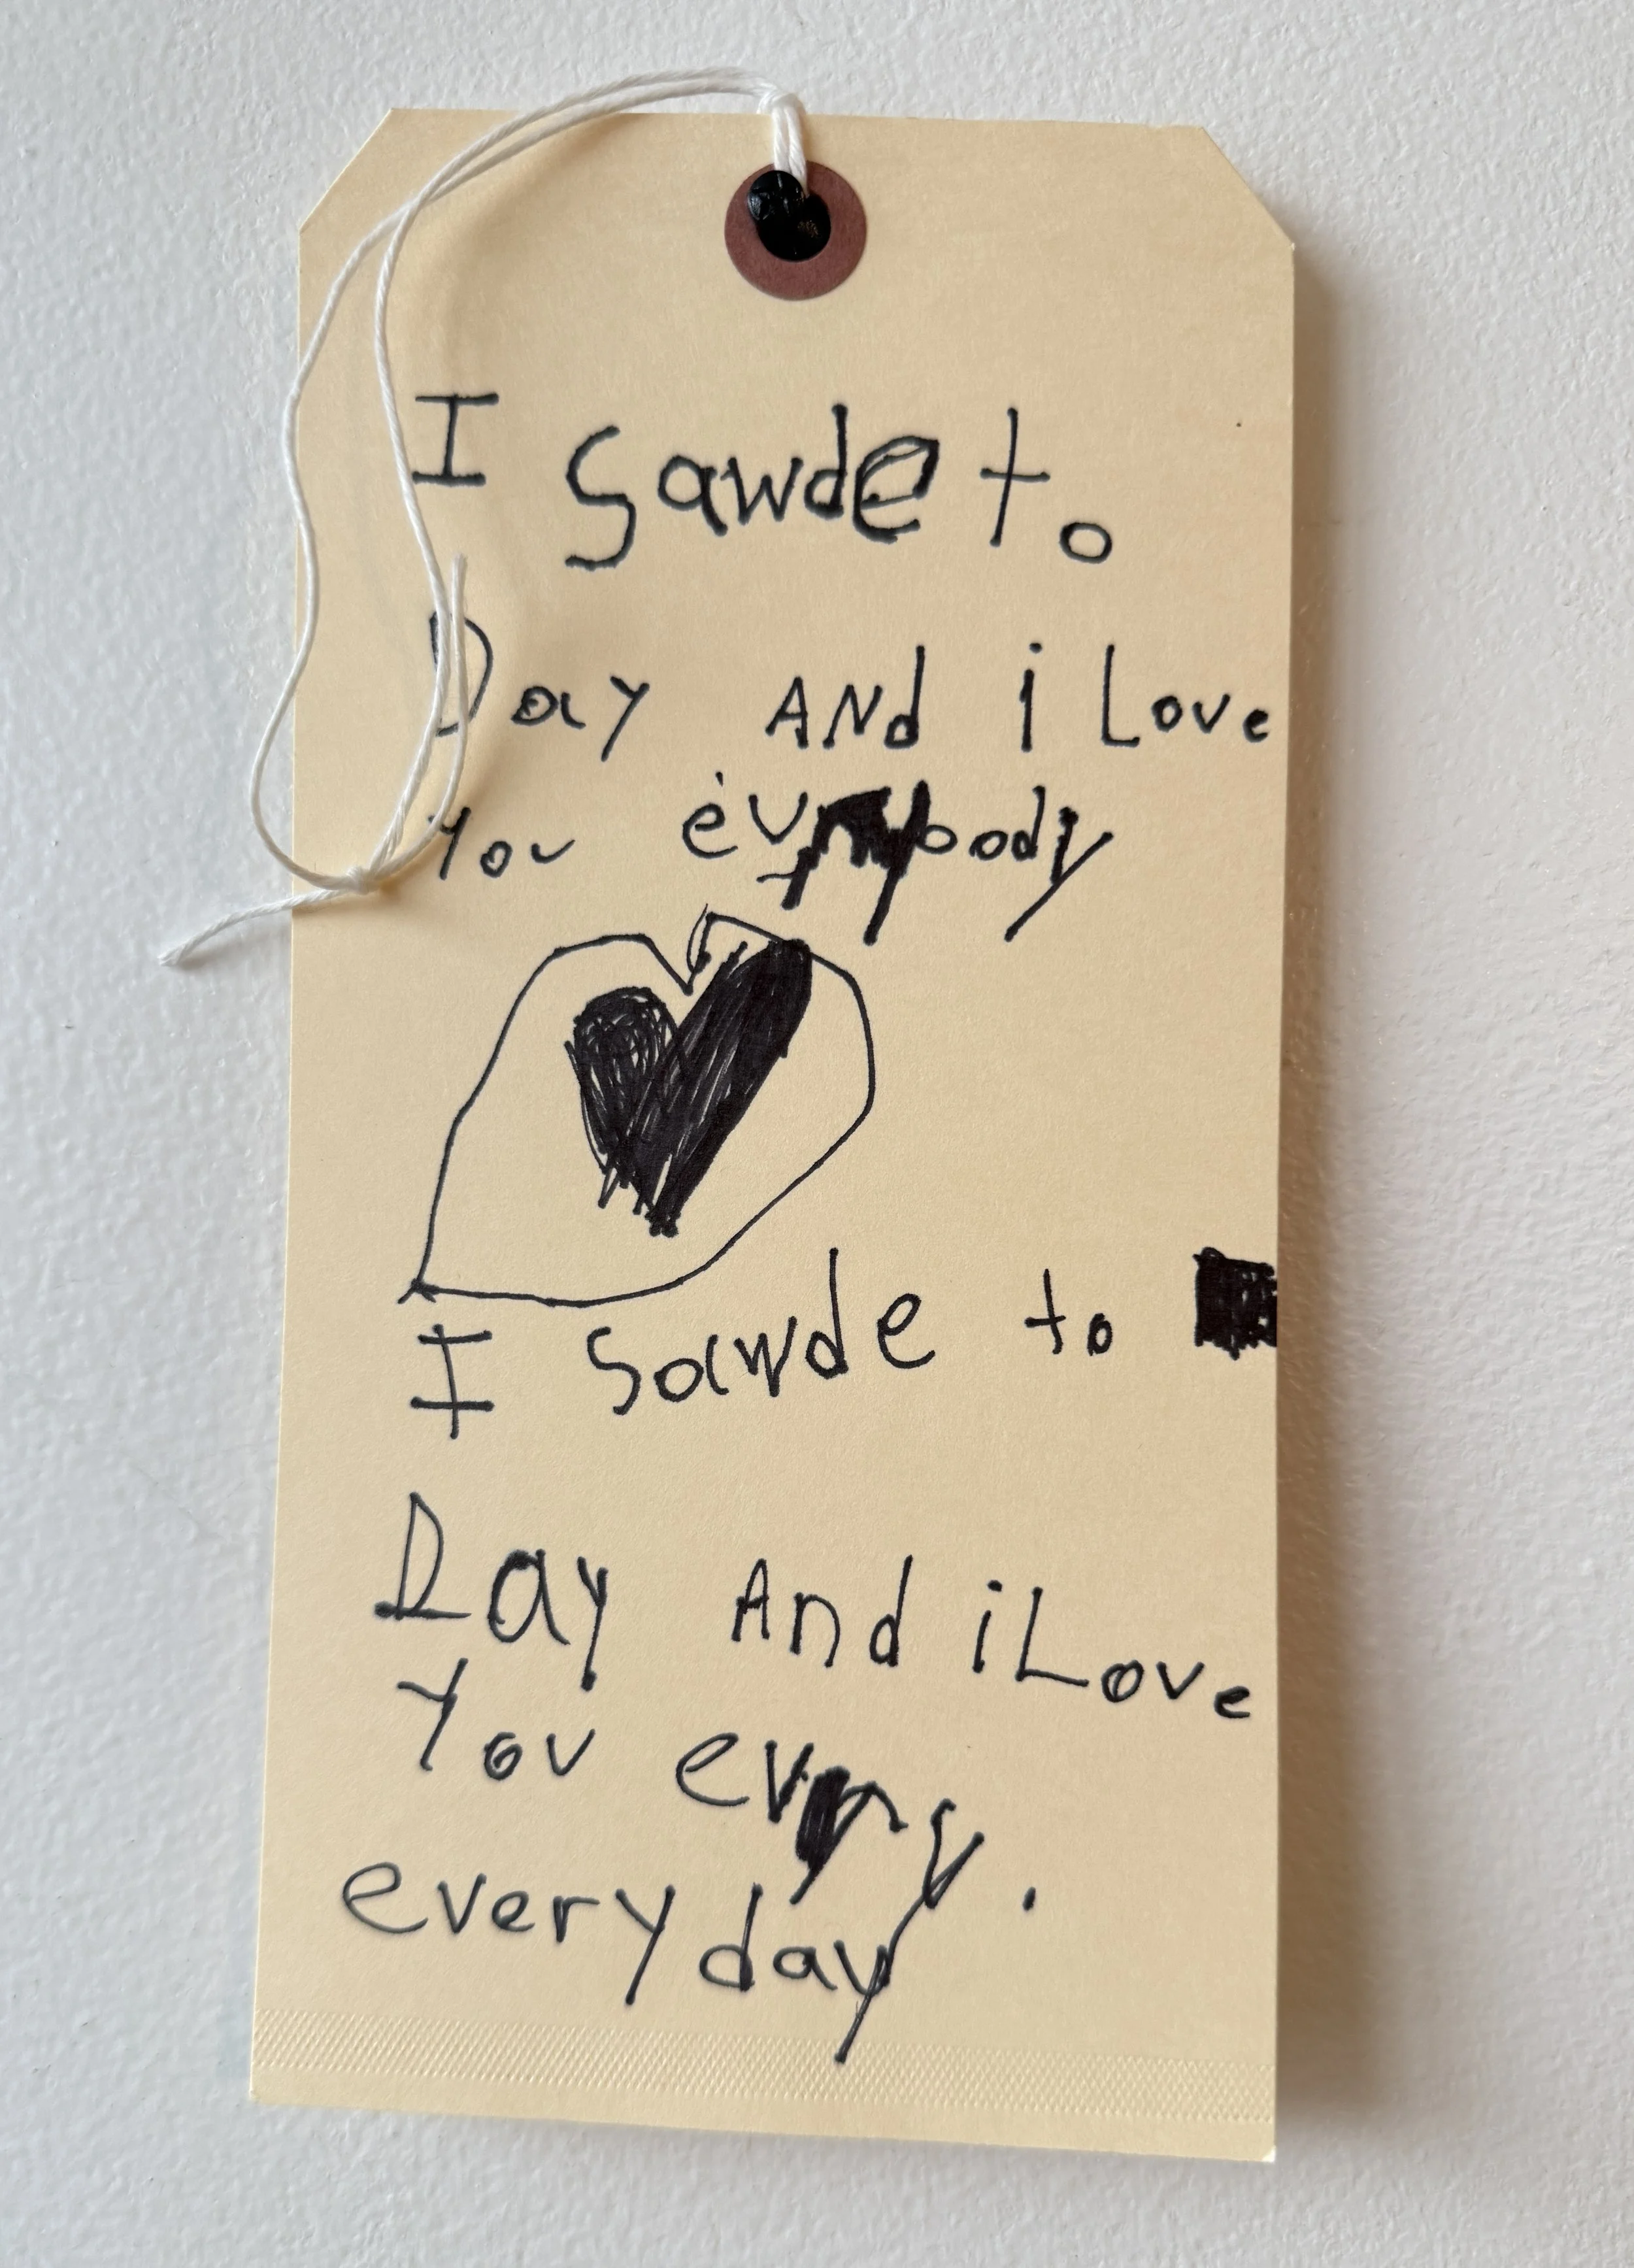 I sawde to
Day ANd i Love
You evrybody
I sawde to
Day And i Love
You evry.
every day